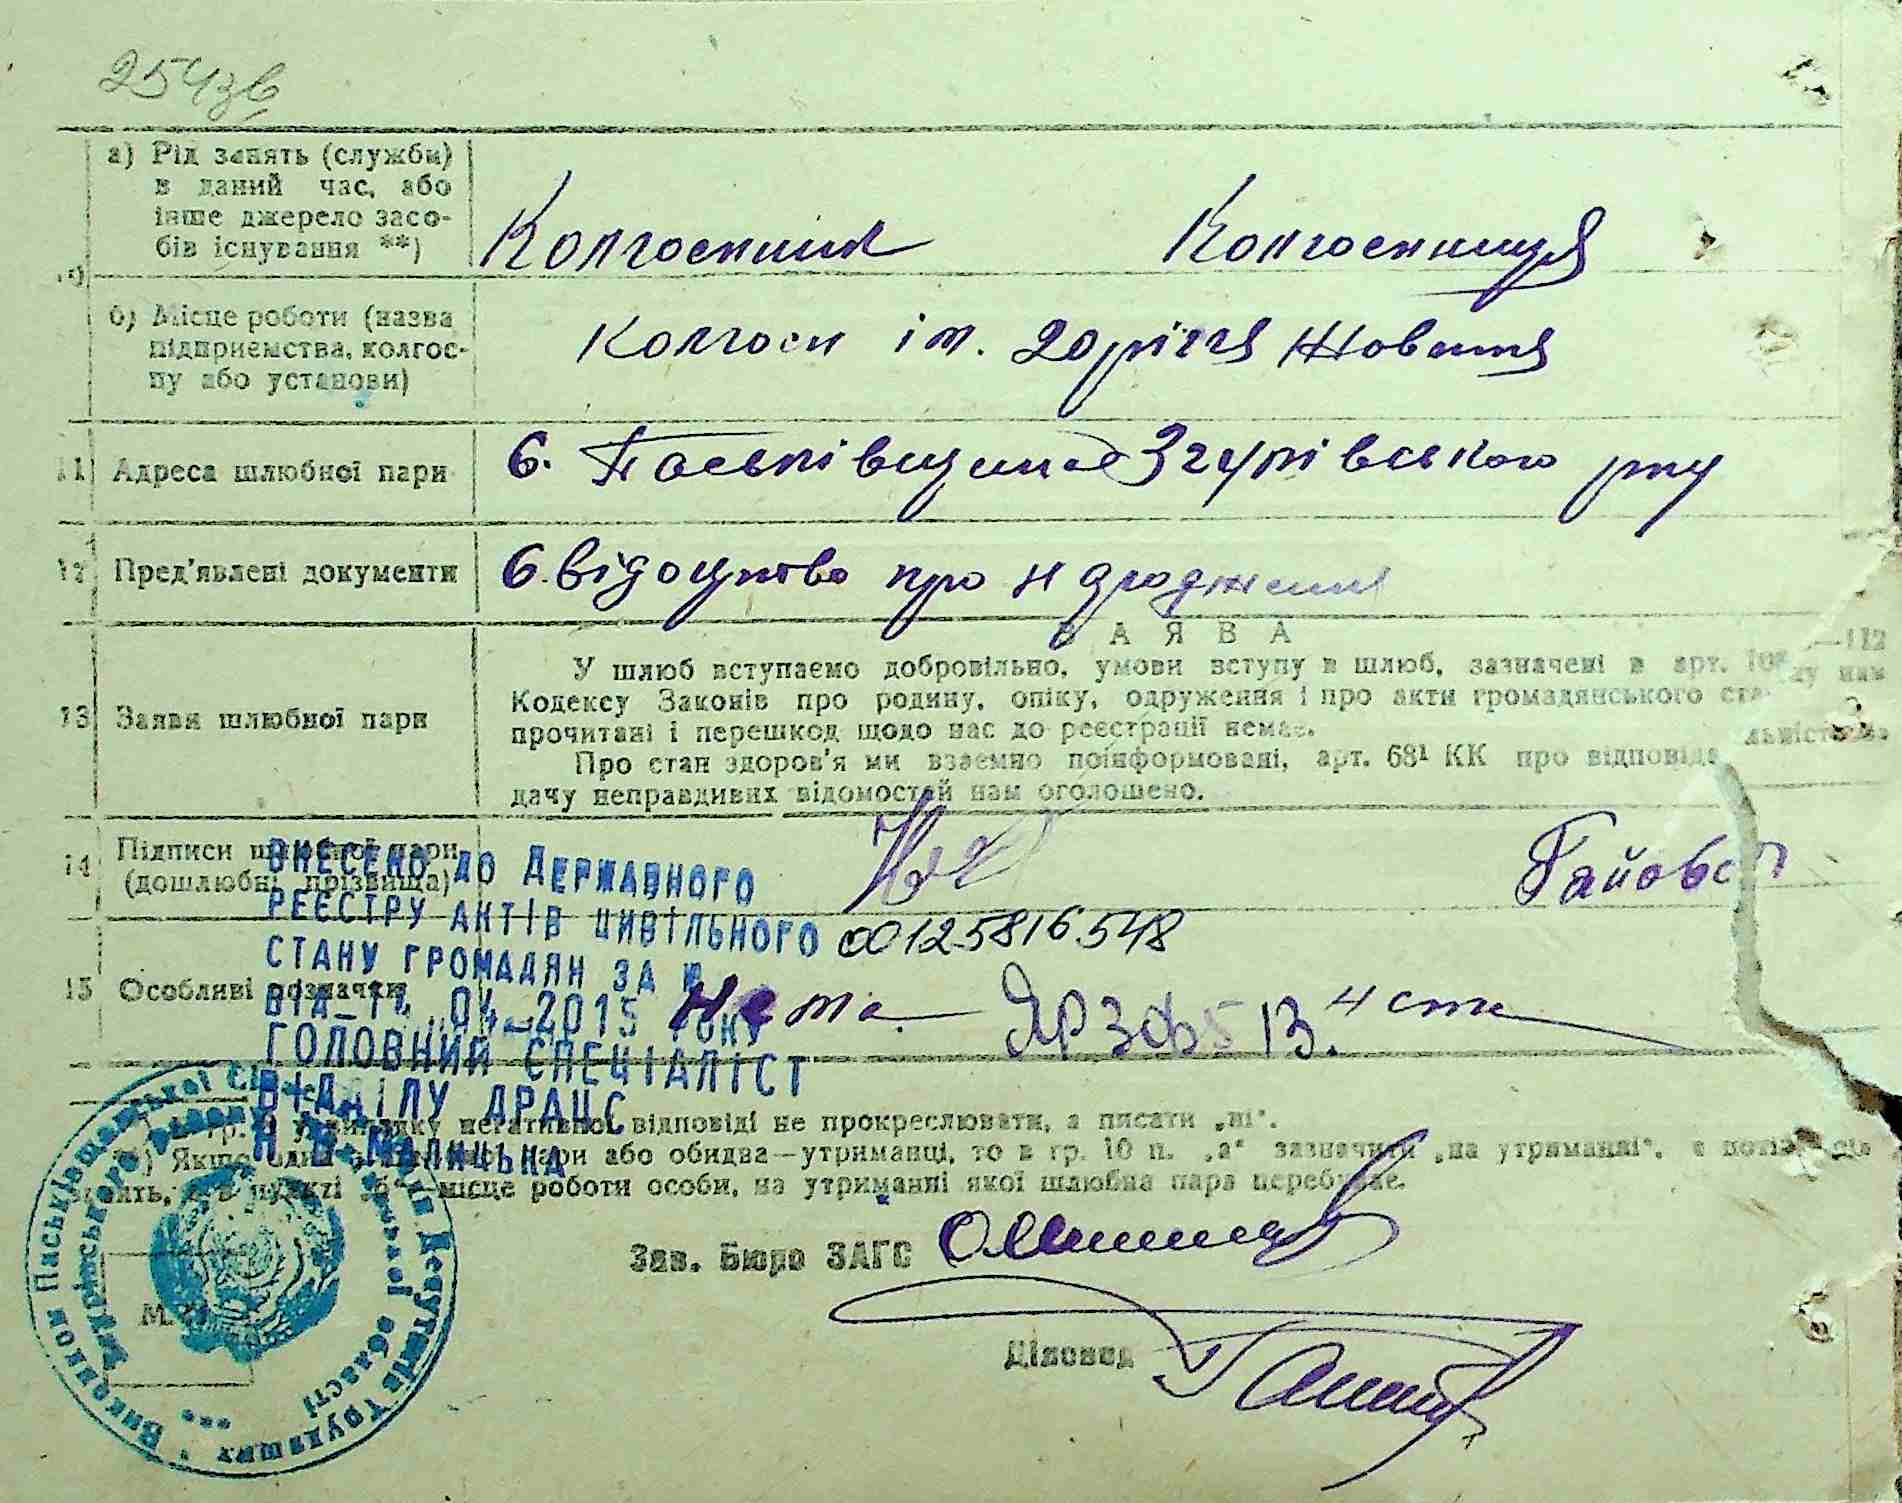 254зв
а) Рід занять (служби)
в даний час, або
інше джерело засо-
бів існування **)
Колгоспник Колгоспниця
б) Місце роботи (назва
підприємства, колгос-
пу або установи)
Колгосп ім. 20 річчя Жовтня
11 Адреса шлюбної пари
с. Паськівщина Згурівського р-ну
12 Пред'явлені документи
Свідоцтво про народження
ЗАЯВА
13 Заяви шлюбної пари
У шлюб вступаємо добровільно, умови вступу в шлюб, зазначені в арт. —112
Кодексу Законів про родину, опіку, одруження і про акти громадянського нам
прочитані і перешкод щодо нас до реєстрації немає.
Про стан здоров'я ми взаємно поінформовані, арт. 68¹ КК про
дачу неправдивих відомостей нам оголошено.
14 Підписи шлюбної пари
(дошлюбні прізвища)
ВНЕСЕНО ДО ДЕРЖАВНОГО
РЕЄСТРУ АКТІВ ЦИВІЛЬНОГО
СТАНУ ГРОМАДЯН ЗА №
00125816548
15 Особливі позначки
ВІД 04 2015 РОКУ
Нема
ГОЛОВНИЙ СПЕЦІАЛІСТ
ВІДДІЛУ ДРАЦС
негативної відповіді не прокреслювати, а писати „ні“.
Якщо пари або обидва—утриманці, то в гр. 10 п. „а“ зазначити „на утриманні“,
в пункті „б“—місце роботи особи, на утриманні якої шлюбна пара перебуває.
Зав. Бюро ЗАГС
Діловод
М.
Виконком Паськівщанської Сільської Ради Депутатів Трудящих
Згурівського району області